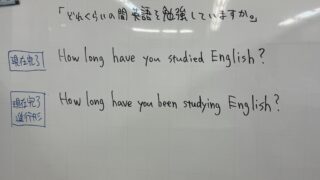 「どれくらいの間英語を勉強していますか。」
現在完了 How long have you studied English?
現在完了進行形 How long have you been studying English?